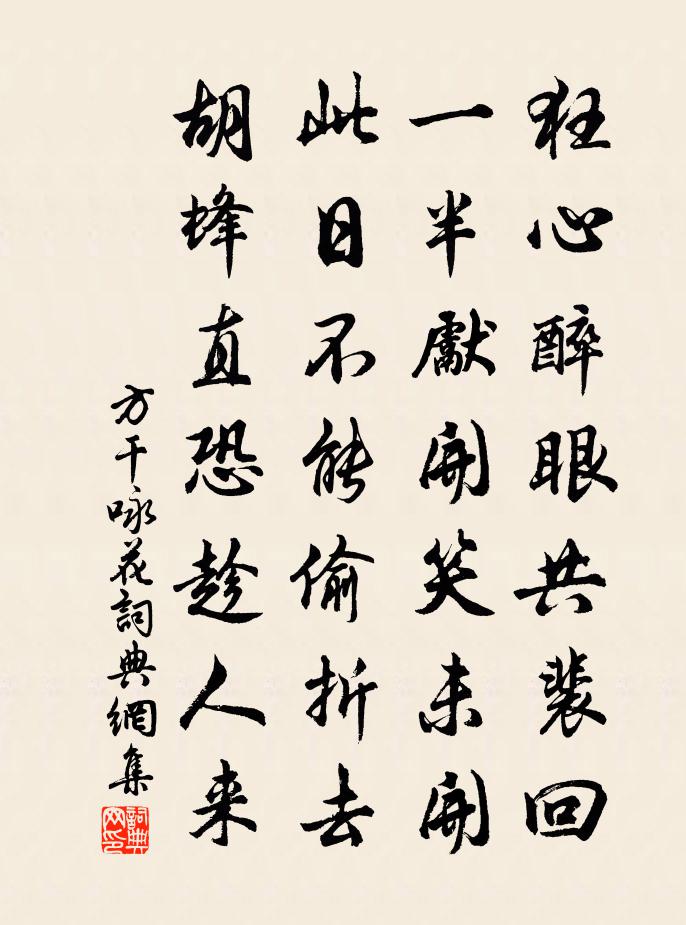 狂心醉眼共裴回
一半獻開笑未開
此日不能偷折去
胡蜂直恐趁人来
方干咏花詞典網集
詞典网印